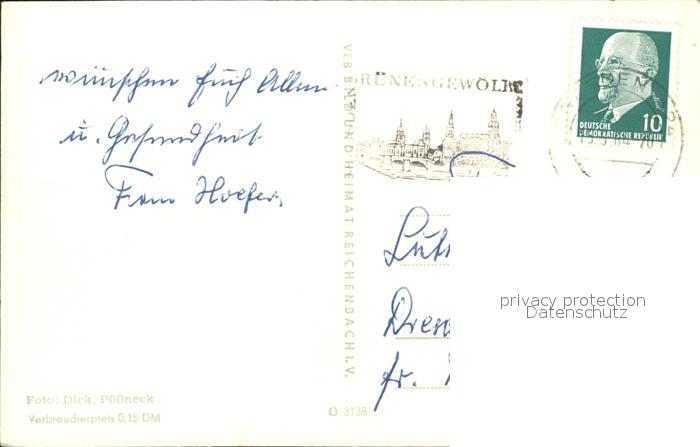 wünschen Euch Allen
u. Gesundheit
Fam Hoefer.
VEB BILD UND HEIMAT REICHENBACH I. V.
GRÜNES GEWÖLBE
DEUTSCHE
DEMOKRATISCHE REPUBLIK
10
Dres
fr.
privacy protection
Datenschutz
Foto: Dick, Pößneck
Verbraucherpreis 0.15 DM
O 3138